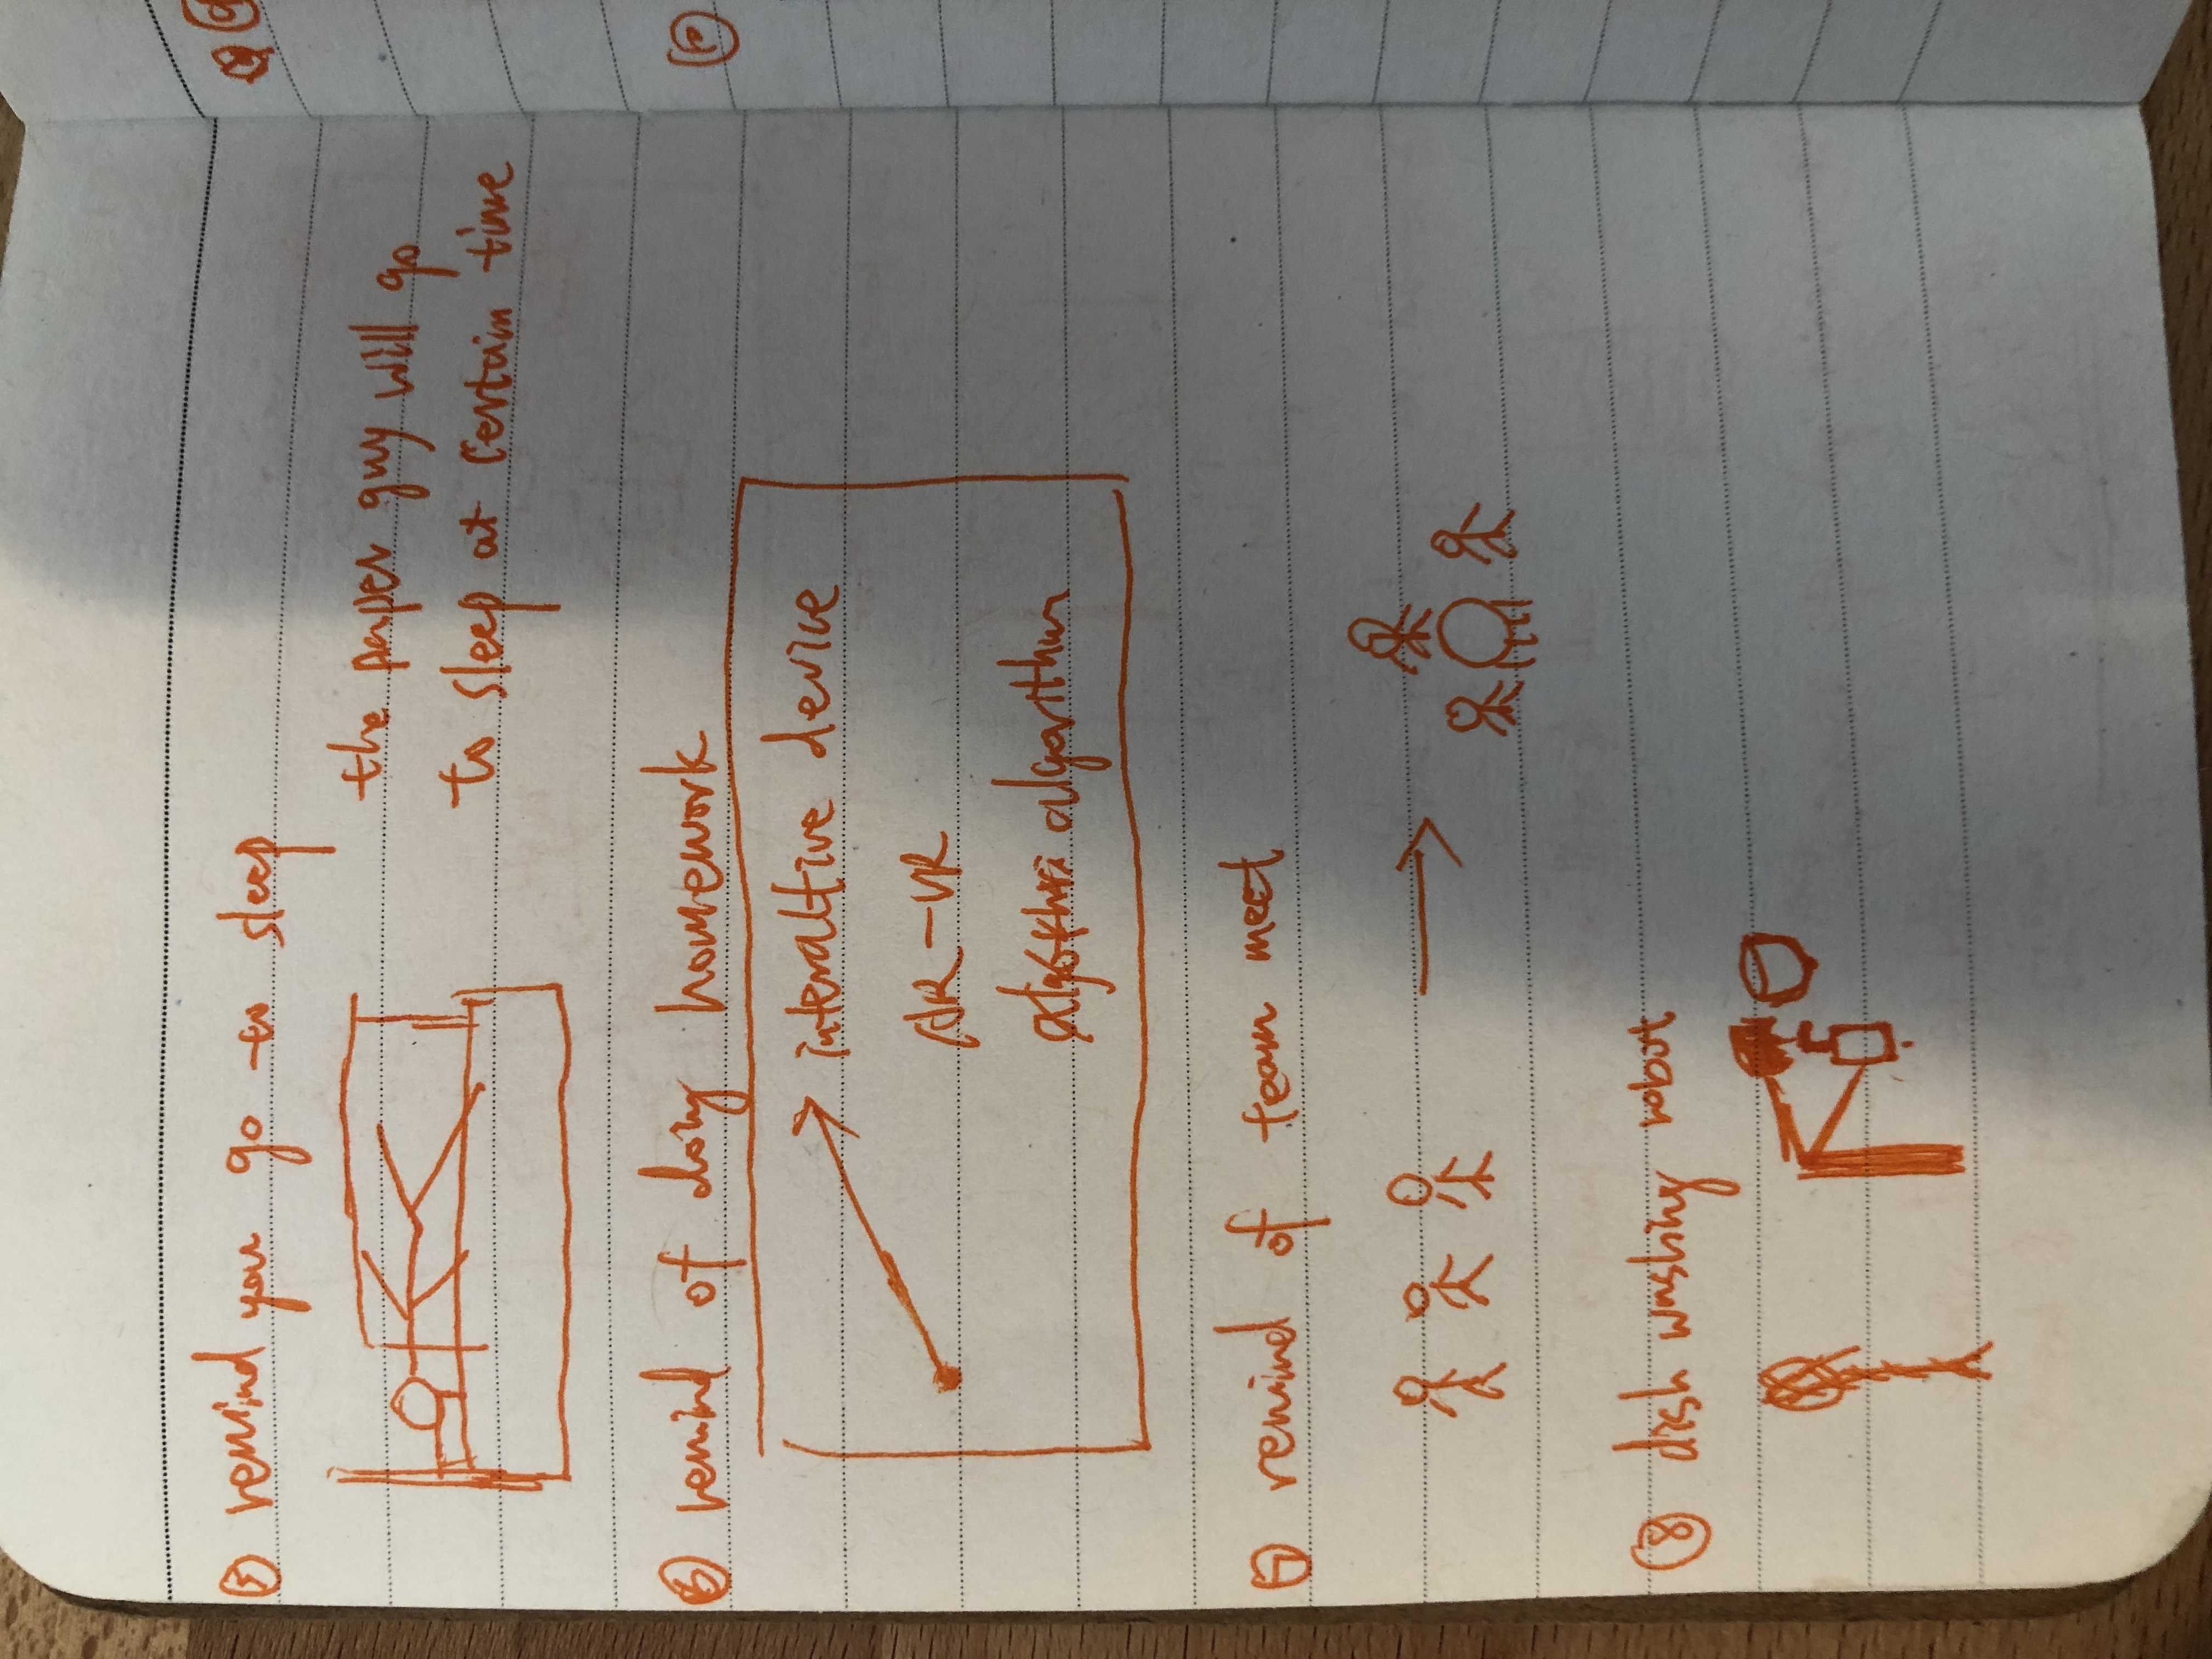 ⑤ remind you go to sleep
the paper guy will go
to sleep at certain time
⑥ remind of doing homework
interaltive device
AR-VR
algorithm
⑦ remind of team meet
⑧ dish washing robot